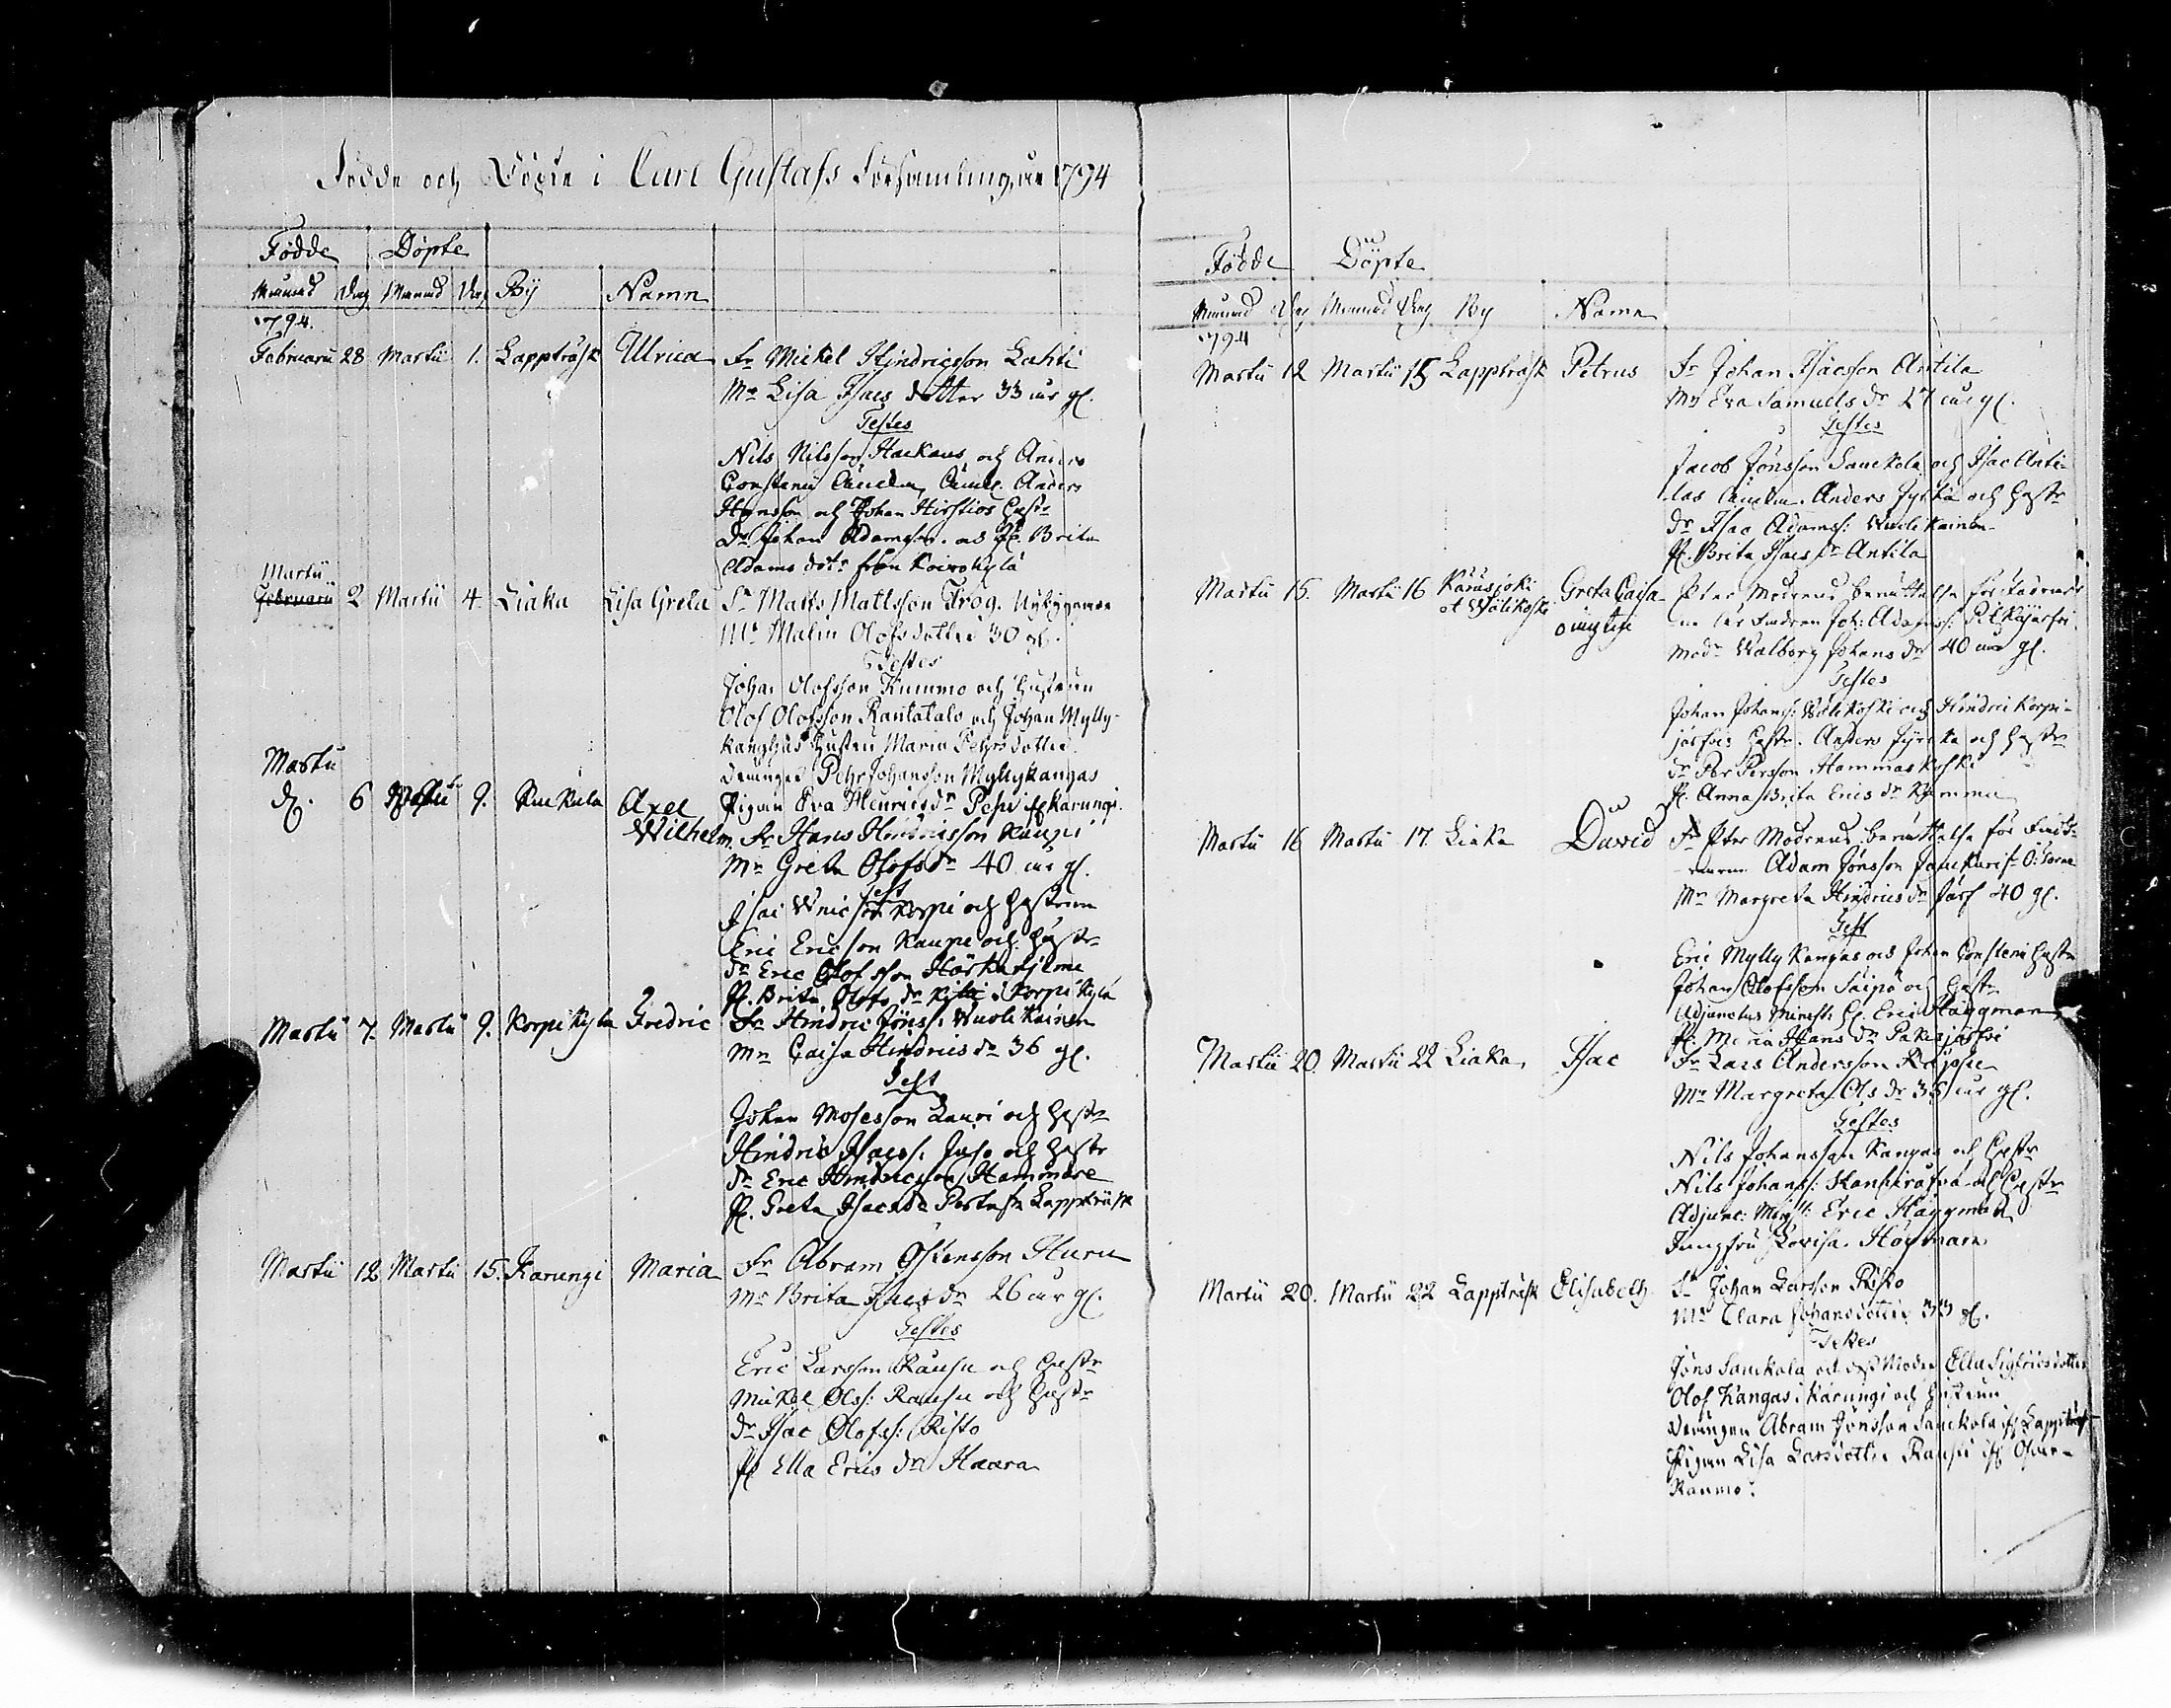 Födde och Döpte i Carl Gustafs Församling, år 1794
Födde Döpte
Månad Dag Månad Dag By Namn
1794.
Februarii 28 Martii 1. Lappträsk Ulrica Fr Mickel Hindricsson Lahti
Mr Lisa Isacs dotter 33 år gl.
Testes
Nils Nilsson Hackaus och Anders
Hansson och Johan Hirstios Hustr
Dr Johan Adamss. Brita
Adams dotr från Koivokylä
Martii
Februarii 2 Martii 4. Liaka Lisa Greta Fr Matts Mattsson Frog. Nybyggare
Mr Malin Olofsdotter 30 gl.
Testes
Johan Olofsson Kummo och hustrun
Olof Olofsson Rantatalo och Johan Mylly-
kangas hustru Maria Pehrsdotter
Drängen Pehr Johansson Myllykangas
Pigan Eva Henricsdr Pepi Karungi.
Martii
d. 6 9. Kuckula Axel
Wilhelm. Fr Hans Hindricsson Kaupi
Mr Greta Olofsdr 40 år gl.
Test
Korpi och hustrun
Eric Ericsson Kaupi och hustr
Dr Eric Olofsson
P. Brita Olofs dr i Korpikylä
Martii 7. Martii 9. Korpikyla Fredric Fr Hindric Jönss: Wuolikainen
Mr Caisa Hindrics dr 36 gl.
Test
Johan Mosesson Lauri och hustr
Hindric Isacss. Juso och hustr
Dr Eric Hindricsson Hammare
P. Greta Isacsdr Lappträsk
Martii 12 Martii 15. Karungi Maria Fr Abram Östensson Huru
Mr Brita Isacs dr 26 år gl.
Testes
Eric Larsson Rausu och hustr
Mickel Olss: Rausu och hustr
Dr Isac Olofss: Risto
P Ella Erics dr Haara
Födde Döpte
Månad Dag Månad Dag By Namn
1794
Martii 12 Martii 15 Lappträsk Petrus Fr Johan Isacsson Antila
Mr Eva Samuels dr 27 år gl.
Testes
Jacob Jönsson Sauckola och Isac Anti-
las Anders Jyrkä och hustr
Dr Isac Adamss: Wuolikainen
P. Brita Isacs dr Antila
Martii 15. Martii 16 Karusjoki Greta Caisa Efter Modrens berättelse
et Wälikoski oägta Joh: Adamss: Pelkijärfvi
Modr Walborg Johans dr 40 år gl.
Testes
Johan Johanss: Wälikoski och Hindric Korpi-
järfvis hustr. Anders Jyrckä och hustr
Dr Per Persson Hammaskoski
P. Anna Brita Erics dr Kummu
Martii 16 Martii 17. Liaka David Fr Efter Modrens berättelse för
Adam Jönsson
Mr Margreta Hindrics dr 40 gl.
Test
Eric Myllykangas och Johan Constenii hustr
Johan Olofsson Saipa och hustr
Adjunctus Minist: H. Eric Häggman
P. Maria Hans dr Pakisjärfvi
Martii 20. Martii 22 Liaka Isac Fr Lars Andersson
Mr Margreta Ols dr 36 år gl.
Testes
Nils Johansson Kangas och hustr
Nils Johanss: och hustr
Adjunc: Min: Eric Häggman
Jungfru Lovisa Högman
Martii 20. Martii 22 Lappträsk Elisabeth Fr Johan Larsson Risto
Mr Clara Johansdotter 33 gl.
Testes
Jöns Sauckola och dess Moder Ella Sigfridsdotter
Olof Kangas i Karungi och hustrun
Drängen Abram Jönsson Sauckola if. Lappträsk
Pigan Lisa Larsdotter Raupi if. Ofver-
Raumo.